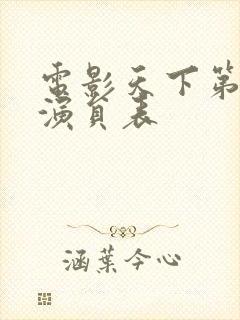 電影天下第
演員表
涵葉今心